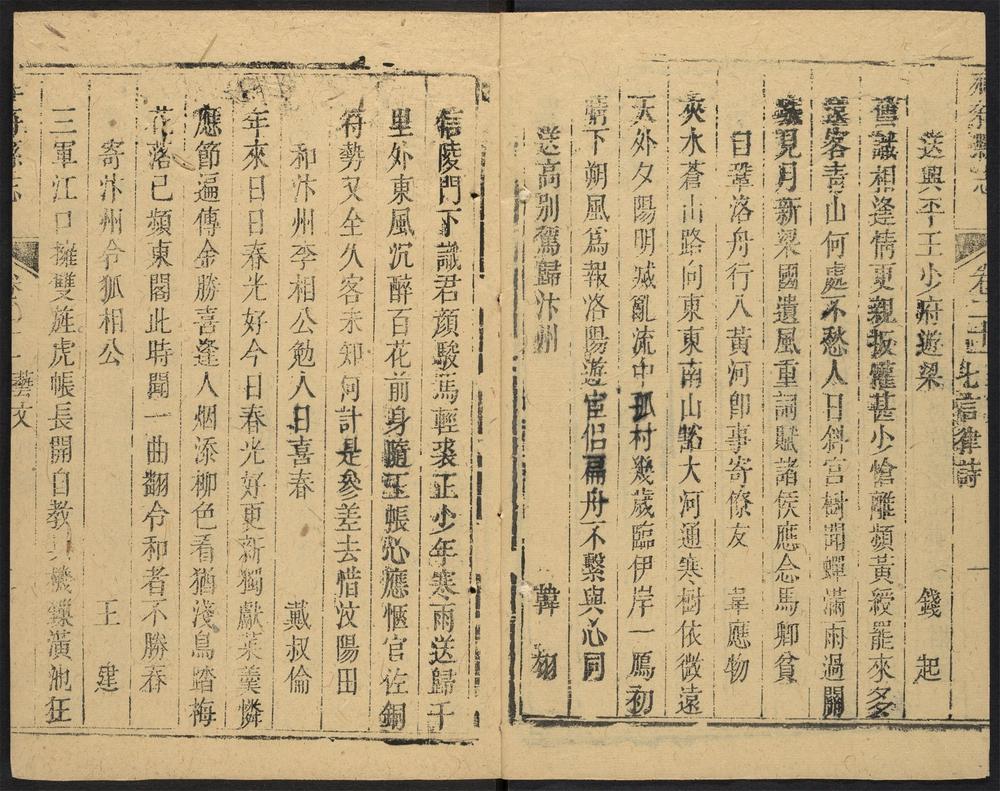 祥符縣志 卷二十 七言律詩 一
送興平王少府遊梁 錢起
舊識相逢情更親攀懽甚少愴離頻黃綬罷來多
遠客青山何處不愁人日斜宮樹聞蟬滿雨過關
城見月新梁國遺風重詞賦諸侯應念馬卿貧
自鞏洛舟行入黃河卽事寄僚友 韋應物
夾水蒼山路向東東南山豁大河通寒樹依微遠
天外夕陽明滅亂流中孤村幾歲臨伊岸一鴈初
晴下朔風爲報洛陽遊宦侶扁舟不繫與心同
送高別駕歸汴州 韓翃
信陵門下識君顔駿馬輕裘正少年寒雨送歸千
里外東風沉醉百花前身隨玉帳心應愜官佐銅
符勢又全久客未知何計是參差去惜汶陽田
和汴州李相公勉人日喜春 戴叔倫
年來日日春光好今日春光好更新獨獻菜羹憐
應節遍傳金勝喜逢人烟添柳色看猶淺鳥踏梅
花落已頻東閣此時聞一曲翻令和者不勝春
寄汴州令狐相公 王建
三軍江口擁雙旌虎帳長開自教兵機鎖潢池狂
祥符縣志 藝文